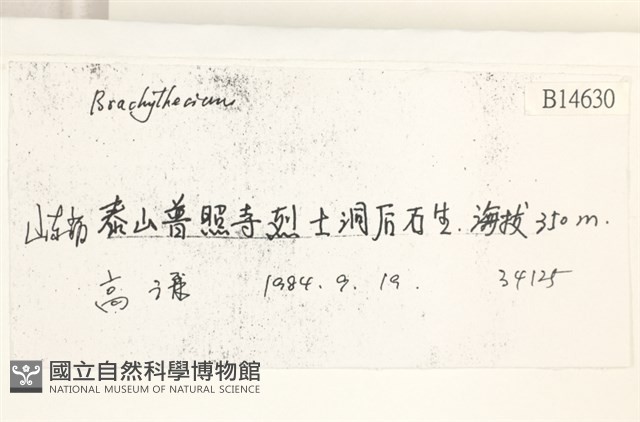 Brachythecium
B14630
山东省 泰山普照寺烈士洞后石生. 海拔350m.
高谦 1984. 9. 19. 34125
國立自然科學博物館
NATIONAL MUSEUM OF NATURAL SCIENCE